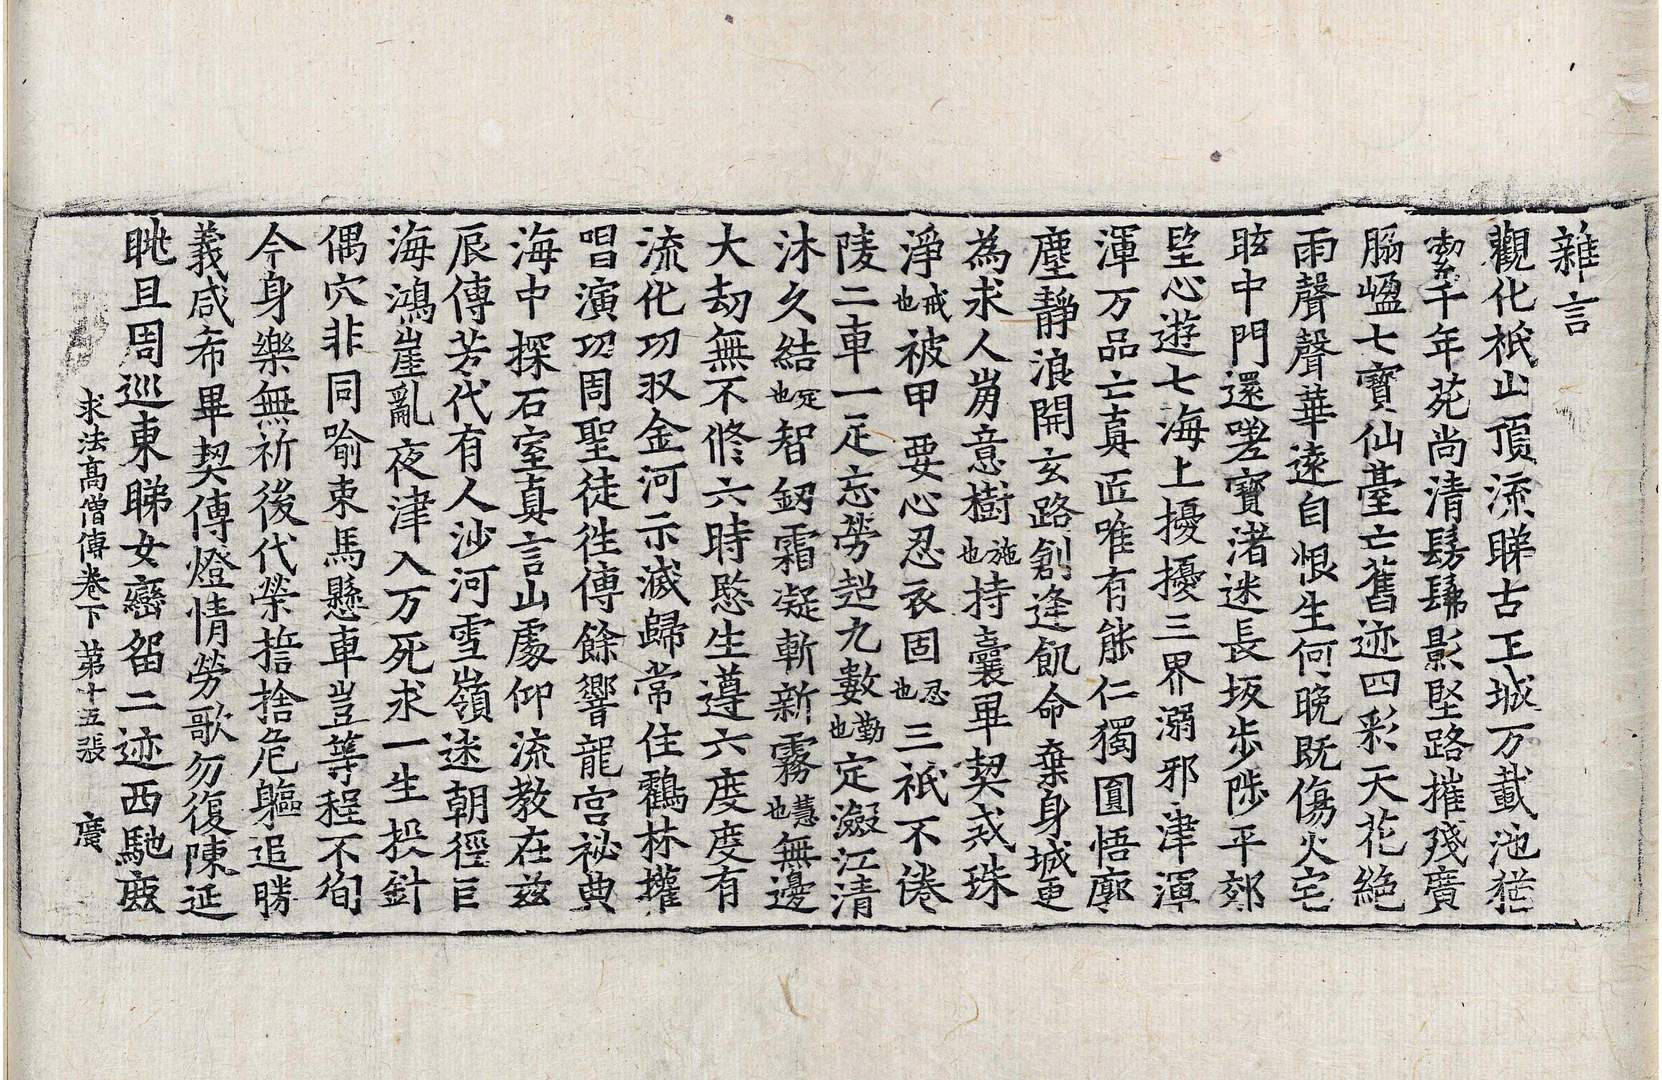 雜言
觀化祇山頂流睇古王城万載池猶
潔千年苑尚清髣髴影堅路摧殘廣
脇嵫七寶仙臺亡舊迹四彩天花絕
雨聲聲華遠自恨生何晚既傷火宅
眩中門還嗟寶渚迷長坂步陟平郊
望心遊七海上擾擾三界溺邪津渾
渾万品亡真匠唯有能仁獨圓悟廓
塵靜浪開玄路創逢飢命棄身城更
為求人崩意樹施也持囊畢契戒珠
淨戒也被甲要心忍衣固忍也三祇不倦
陵二車一足忘勞超九數勤也定瀲江清
沐久結定也智釰霜凝斬新霧慧也無邊
大劫無不修六時愍生遵六度度有
流化功収金河示滅歸常住鶴林權
唱演功周聖徒往傳餘響龍宮祕典
海中探石室真言山處仰流教在茲
辰傳芳代有人沙河雪嶺迷朝徑巨
海鴻崖亂夜津入万死求一生投針
偶穴非同喻束馬懸車豈等程不徇
今身樂無祈後代榮誓捨危軀追勝
義咸希畢契傳燈情勞歌勿復陳延
眺且周巡東睇女巒留二迹西馳鹿
求法高僧傳卷下 第十五張 廣